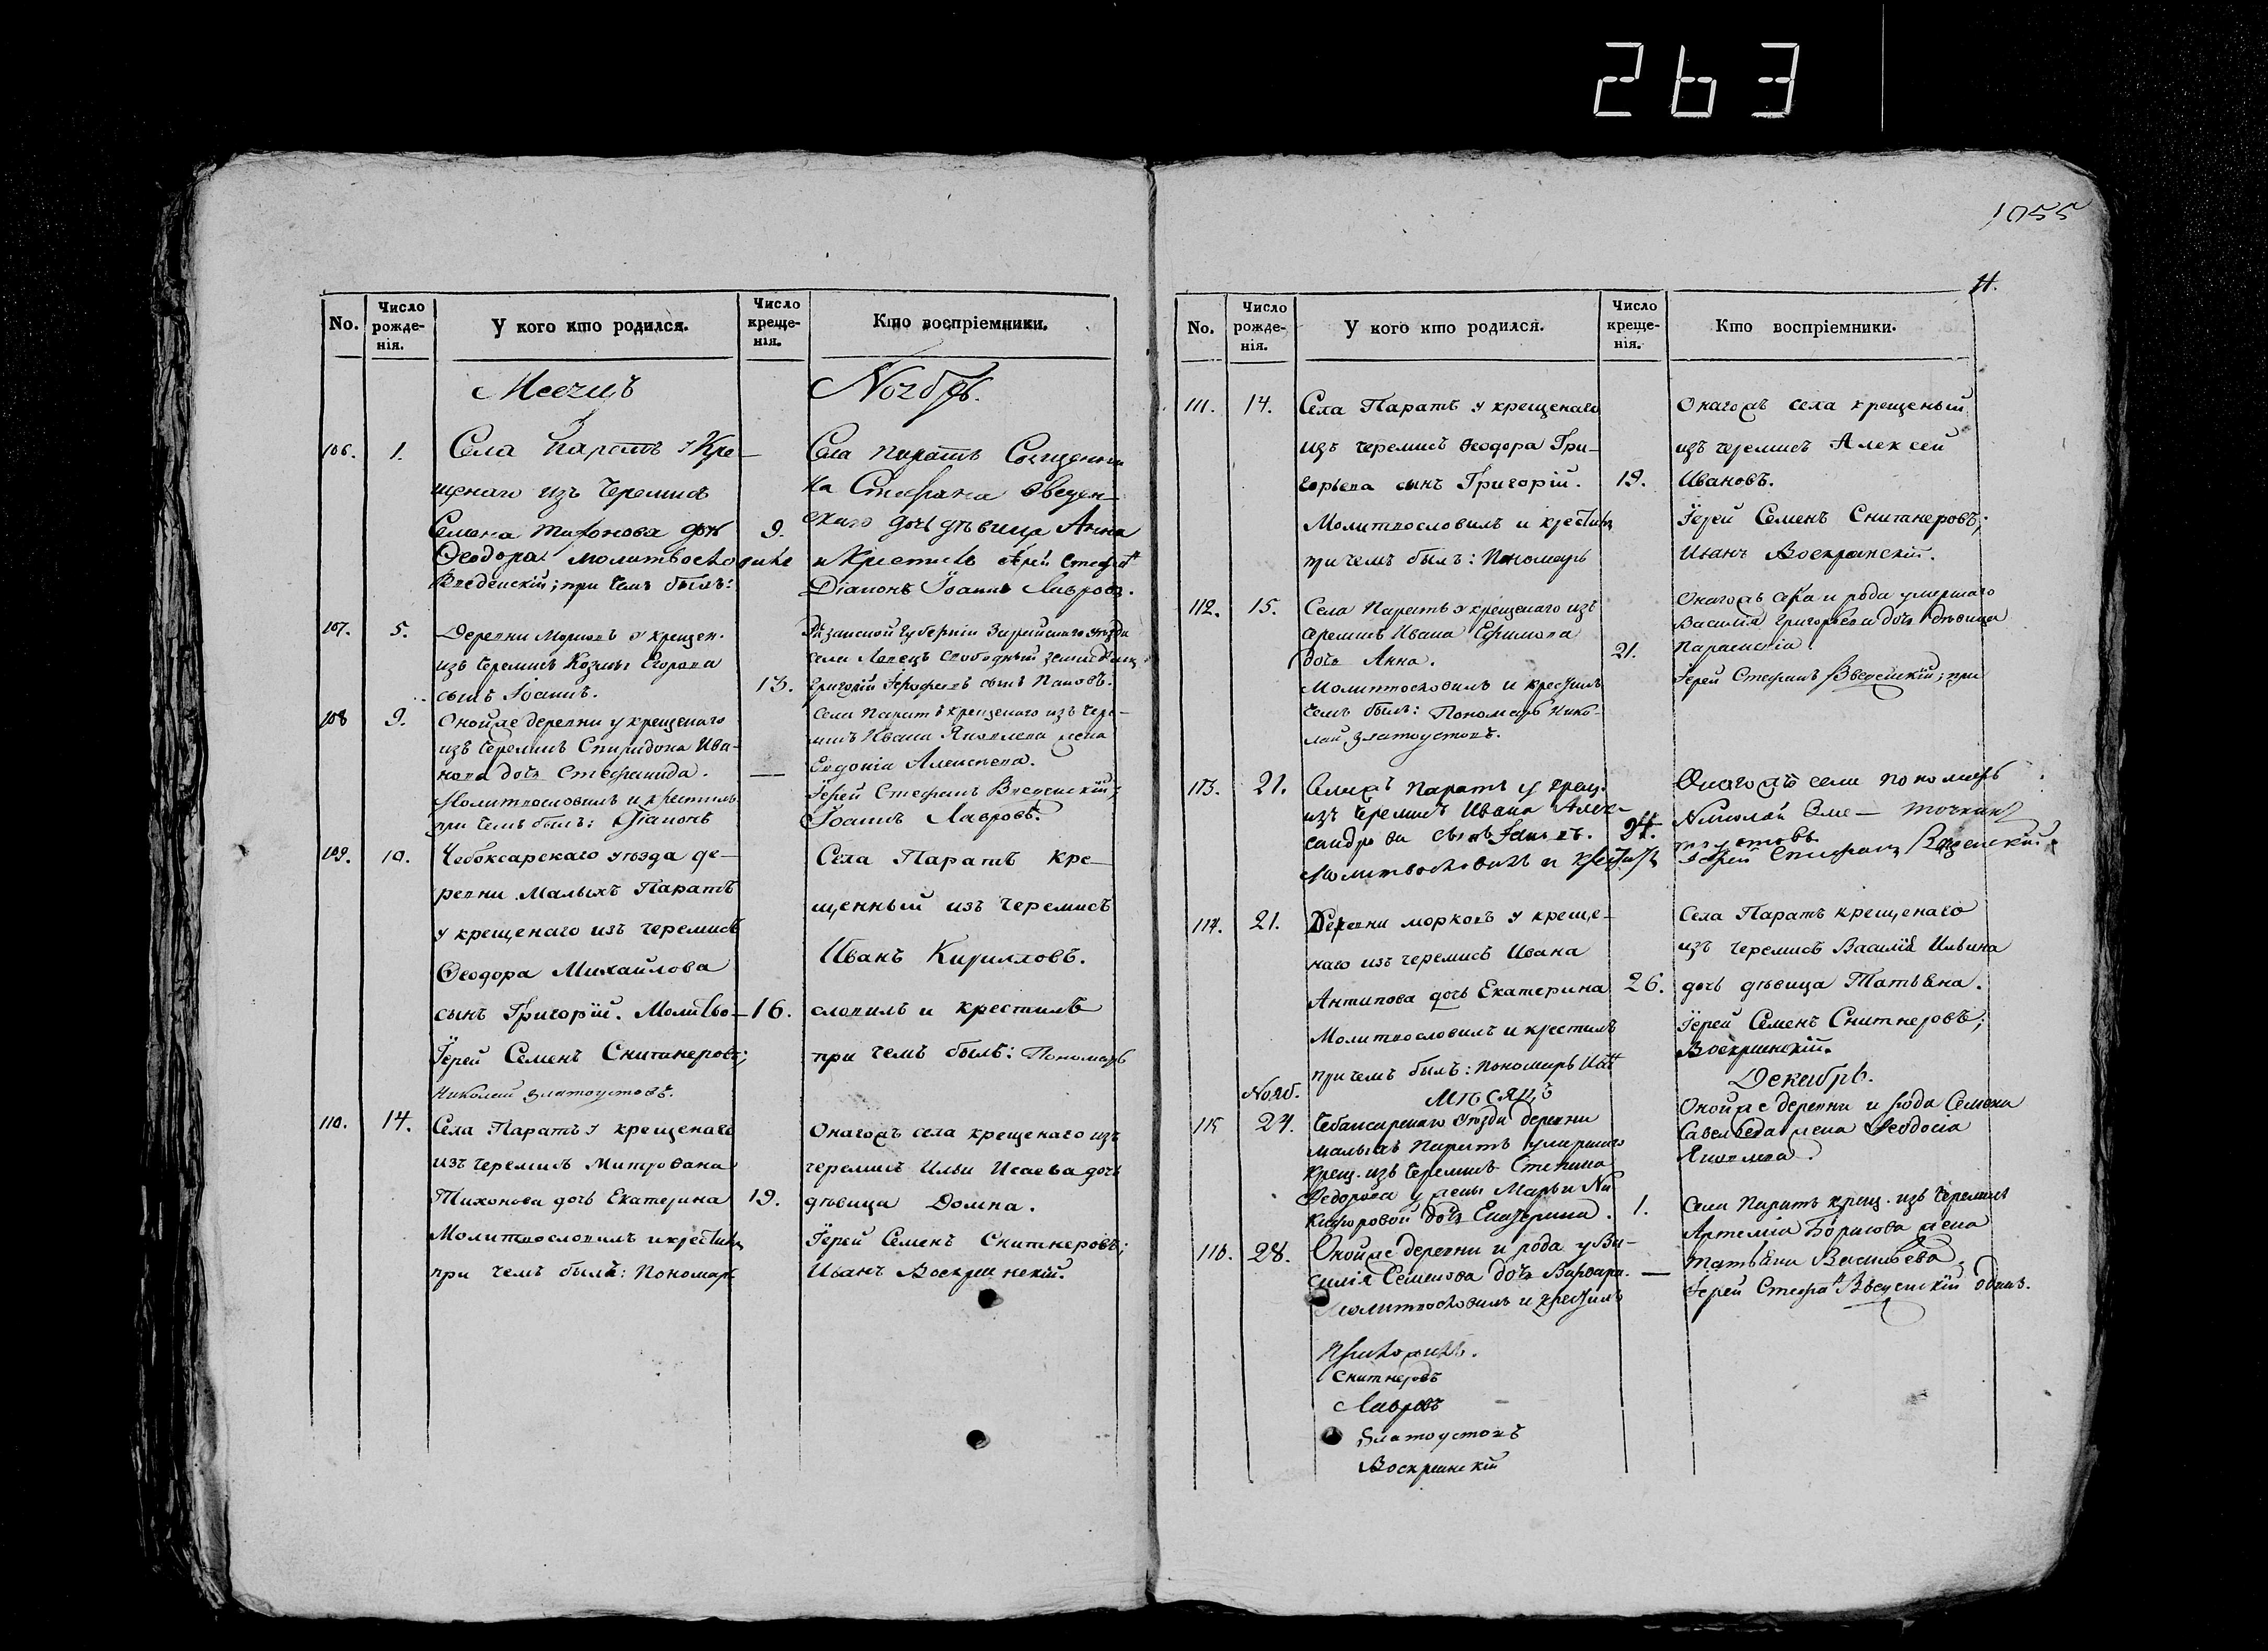 263
1055
11.
No.
Число рожде-нія.
У кого кто родился.
Число креще-нія.
Кто воспріемники.
Месяцъ
Ноябрь.
106.
1.
Села Паратъ у Кре-
щенаго изъ Черемисъ
Семена Тихонова дочь
Ѳеодора молитвословилъ
Введенскій; при чемъ былъ:
9.
Села Паратъ Священни
ка Стефана Введен-
скаго дочь дѣвица Анна
и Крестилъ Іерей Стефанъ
Діаконъ Іоаннъ Лавровъ.
107.
5.
Деревни Морковъ у крещен.
изъ черемисъ Козмы Егорова
сынъ Іоаннъ.
13.
Рязанской губерніи Зарайскаго уѣзда
села Ловецъ свободный
Григорій сынъ Пановъ.
108
9.
Оной же деревни у крещенаго
изъ черемисъ Спиридона Ива-
нова дочь Стефанида.
Молитвословилъ и крестилъ
при чемъ былъ: Діаконъ
—
Села Паратъ крещенаго изъ чере-
мисъ Ивана Яковлева жена
Евдокія Алексѣева.
Іерей Стефанъ Введенскій;
Іоаннъ Лавровъ.
109.
10.
Чебоксарскаго уѣзда де-
ревни Малыхъ Паратъ
у крещенаго изъ черемисъ
Ѳеодора Михайлова
сынъ Григорій. Молитво-
Іерей Семенъ Снитнеровъ;
Николай Златоустовъ.
16.
Села Паратъ кре-
щенный изъ черемисъ
Иванъ Кирилловъ.
словилъ и крестилъ
при чемъ былъ: Пономарь
110.
14.
Села Паратъ у крещенаго
изъ черемисъ Митрофана
Тихонова дочь Екатерина
Молитвословилъ и крестилъ
при чемъ былъ: Пономарь
19.
Онагожъ села крещенаго изъ
черемисъ Ильи Исаева дочь
дѣвица Домна.
Іерей Семенъ Снитнеровъ;
Иванъ Воскресенскій.
No.
Число рожде-нія.
У кого кто родился.
Число креще-нія.
Кто воспріемники.
111.
14.
Села Паратъ у крещенаго
изъ черемисъ Ѳеодора Гри-
горьева сынъ Григорій.
Молитвословилъ и крестилъ
при чемъ былъ: Пономарь
19.
Онагожъ села крещеный
изъ черемисъ Алексей
Ивановъ.
Іерей Семенъ Снитнеровъ;
Иванъ Воскресенскій.
112.
15.
Села Паратъ у крещенаго изъ
черемисъ Ивана Ефимова
дочь Анна.
Молитвословилъ и крестилъ
чемъ былъ: Пономарь Нико-
лай Златоустовъ.
21.
Онагожъ села и рода умершаго
Василія Григорьева дочь дѣвица
Параскевія.
Іерей Стефанъ Введенскій; при
113.
21.
Селажъ Паратъ у крещ.
изъ черемисъ Ивана Алек-
сандрова сынъ Іаковъ.
Молитвословилъ и крестилъ
24.
Онагожъ села пономарь
Николай Зла-
тоустовъ.
Іерей Стефанъ Введенскій.
114.
21.
Деревни Морковъ у креще-
наго изъ черемисъ Ивана
Антипова дочь Екатерина
Молитвословилъ и крестилъ
при чемъ былъ: Пономарь Иванъ
26.
Села Паратъ крещенаго
изъ черемисъ Василія Ильина
дочь дѣвица Татьяна.
Іерей Семенъ Снитнеровъ;
Воскресенскій.
Нояб.
Мѣсяцъ
Декабрь.
115
24.
Чебоксарскаго Уѣзда деревни
малыхъ Паратъ умершаго
крещ. изъ черемисъ Степана
Федорова у жены Марьи Ни
кифоровой дочь Екатерина.
1.
Оной же деревни и рода Семена
Савельева жена Ѳеодосія
Яковлева.
116.
28.
Оной же деревни и рода у Ва-
силія Семенова дочь Варвара.
Молитвословилъ и крестилъ
—
Села Паратъ крещ. изъ черемисъ
Артемія Борисова жена
Татьяна Васильева.
Іерей Стефанъ Введенскій одинъ.
Приложилъ.
Снитнеровъ
Лавровъ
Златоустовъ
Воскресенскій